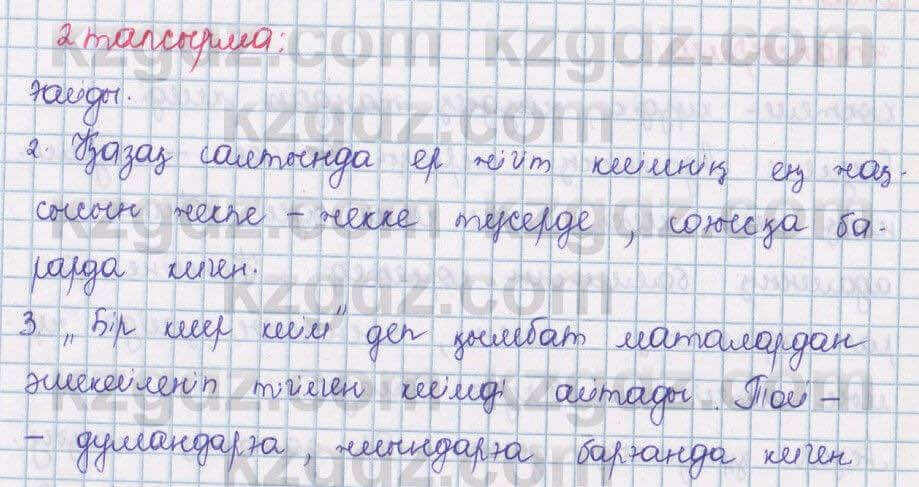 2 тапсырма:
ғайды.
2. Қазақ салтында ер жігіт киімнің ең жақ-
сысын жекпе - жекке түсерде, соғысқа ба-
рарда киген.
3 „Бір киер киім" деп қымбат маталардан
әшекейленіп тігілген киімді айтады. Той -
- думандарға, жиындарға барғанда киген